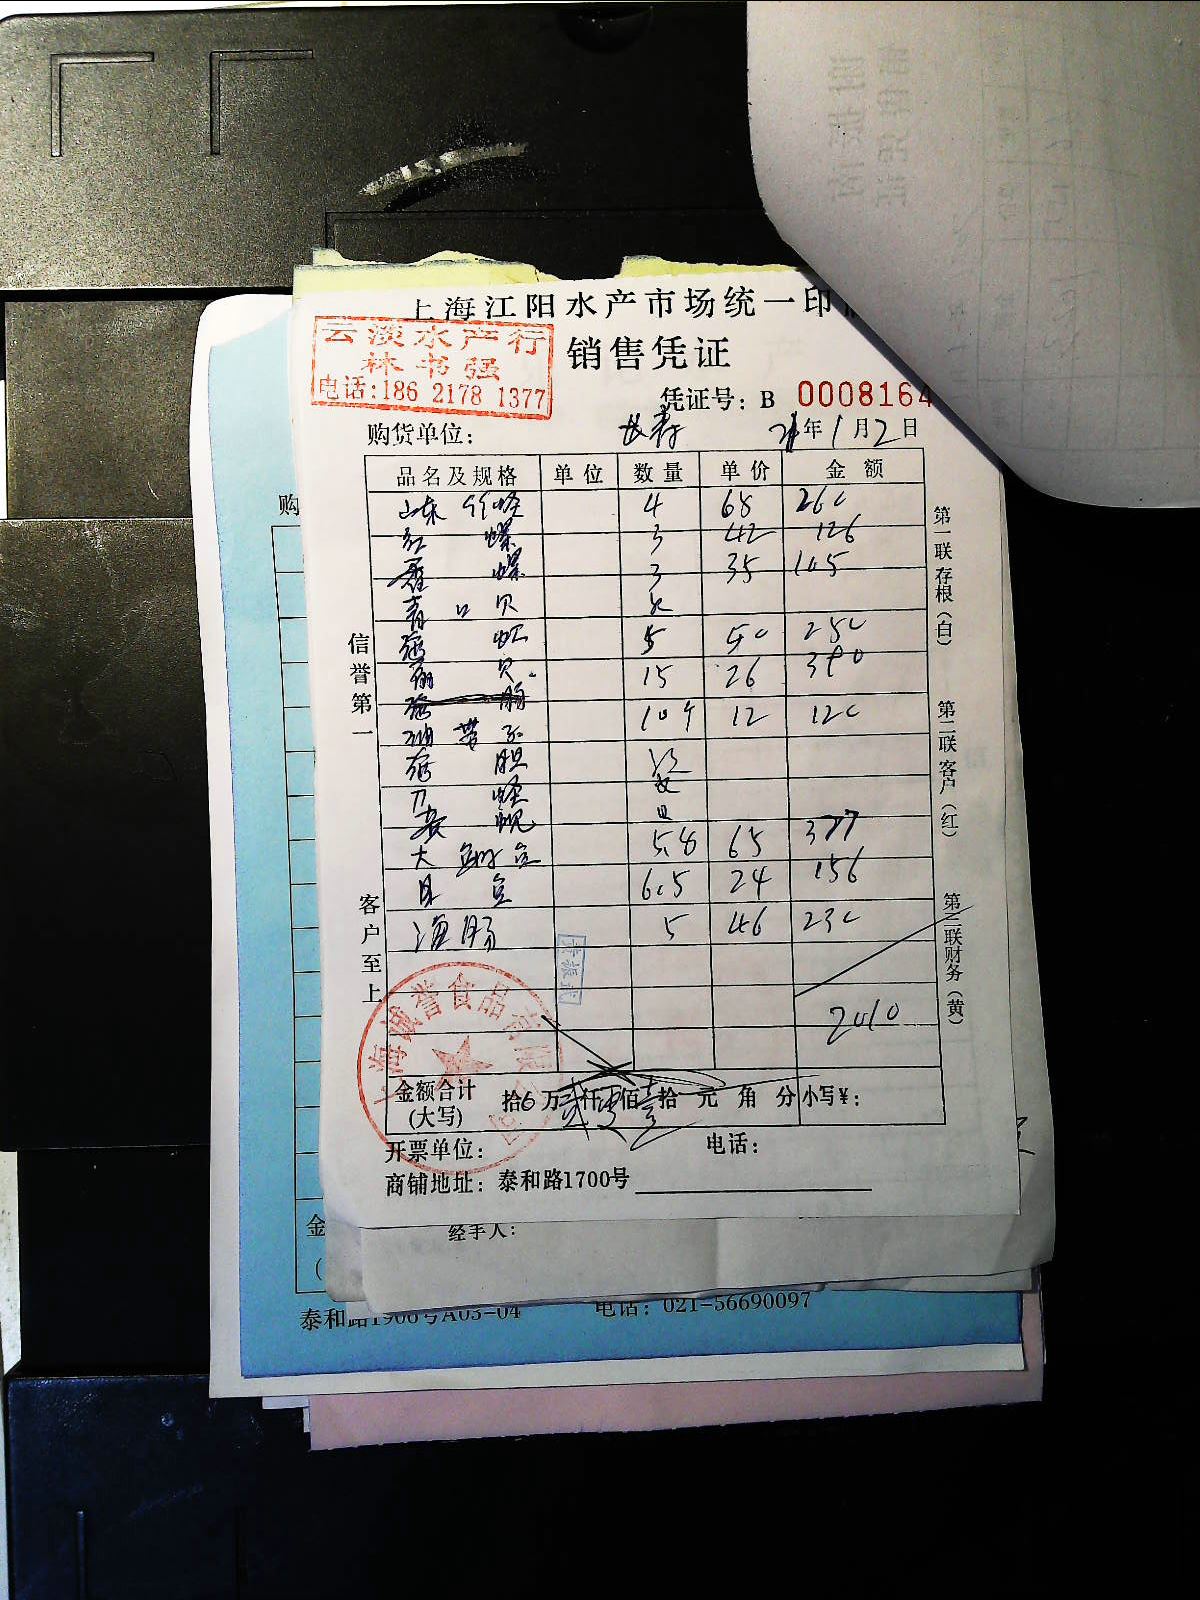 上海江阳水产市场统一印
云淡水产行
林书强
电话:186 2178 1377
销售凭证
凭证号: B 0008164
购货单位: 长寿 21年1月2日
品名及规格 单位 数量 单价 金额
山东竹蛏 4 68 260
红螺 3 42 126
香螺 3 35 105
青口贝
虹 5 50 250
贝 15 26 390
带子 10个 12 120
胆
刀蛏
蚬
大鲍 5.8 65 377
6.5 24 156
海肠 5 46 230
2010
金额合计
(大写)
拾万贰仟零佰壹拾元角分 小写¥:
开票单位: 电话:
商铺地址: 泰和路1700号
信誉第一
客户至上
第一联存根(白)
第二联客户(红)
第三联财务(黄)
上海诚誉食品有限公司
购
金
(
经手人:
泰和路1906号A03-04 电话: 021-56690097